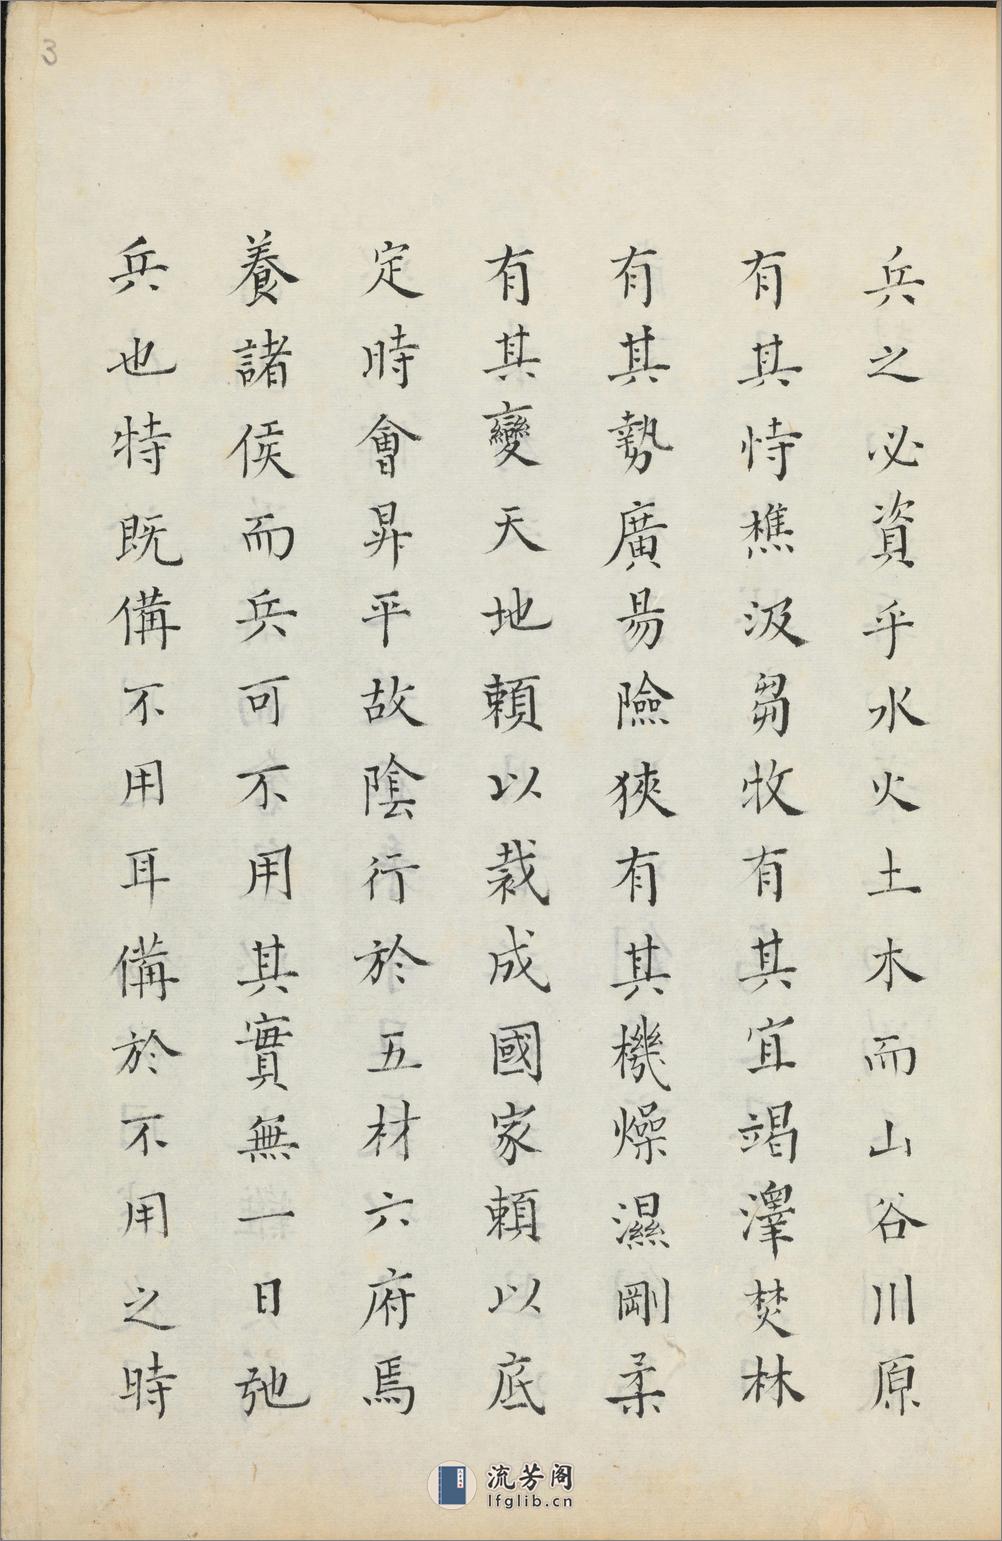 3
兵之必資乎水火土木而山谷川原
有其恃樵汲芻牧有其宜竭澤焚林
有其勢廣易險狹有其機燥濕剛柔
有其變天地賴以裁成國家賴以底
定時會昇平故陰行於五材六府焉
養諸侯而兵可不用其實無一日弛
兵也特既備不用耳備於不用之時
流芳阁
lfglib.cn